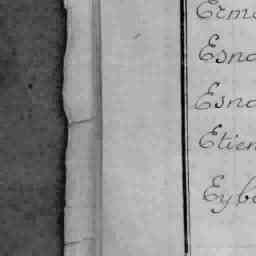 Erm
Esna
Esna
Etien
Eyb